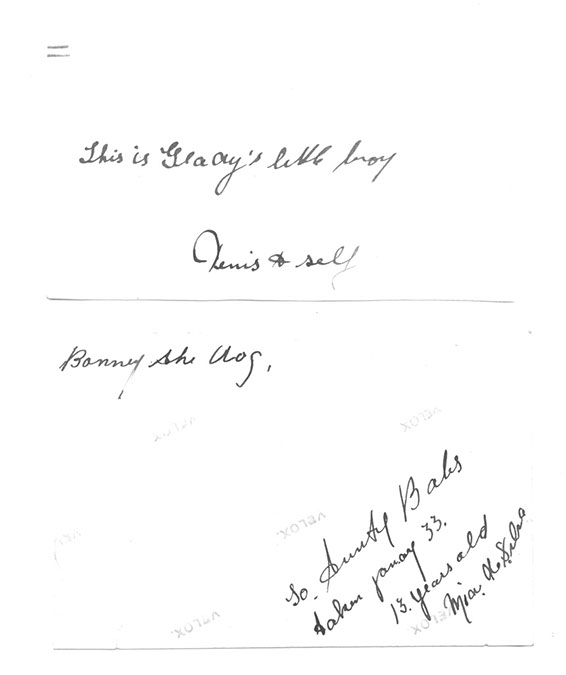 This is Glady's little boy
Denis & self
Bonney the dog,
To. Aunty Babs
taken January 33.
13. years old
VELOX.
VELOX.
VELOX.
VELOX.
VELOX.